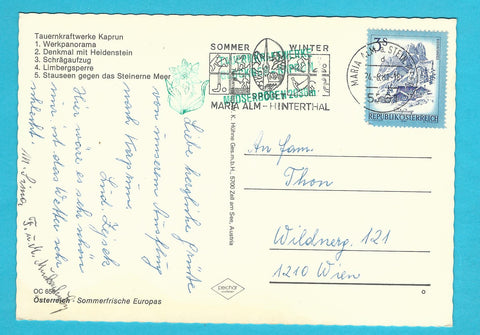 Tauernkraftwerke Kaprun
1. Werkpanorama
2. Denkmal mit Heidenstein
3. Schrägaufzug
4. Limbergsperre
5. Stauseen gegen das Steinerne Meer
SOMMER WINTER
MARIA ALM - HINTERTHAL
MARIA ALM
3s
REPUBLIK ÖSTERREICH
Liebe herzliche Grüße
von unserem Ausflug
nach Kaprun.
Hier wäre es sehr schön
nur ist das Wetter sehr
schlecht.
K. Hühne Ges.m.b.H., 5700 Zell am See, Austria
An Fam.
Thon
Wildnerg. 121
1210 Wien
Österreich - Sommerfrische Europas